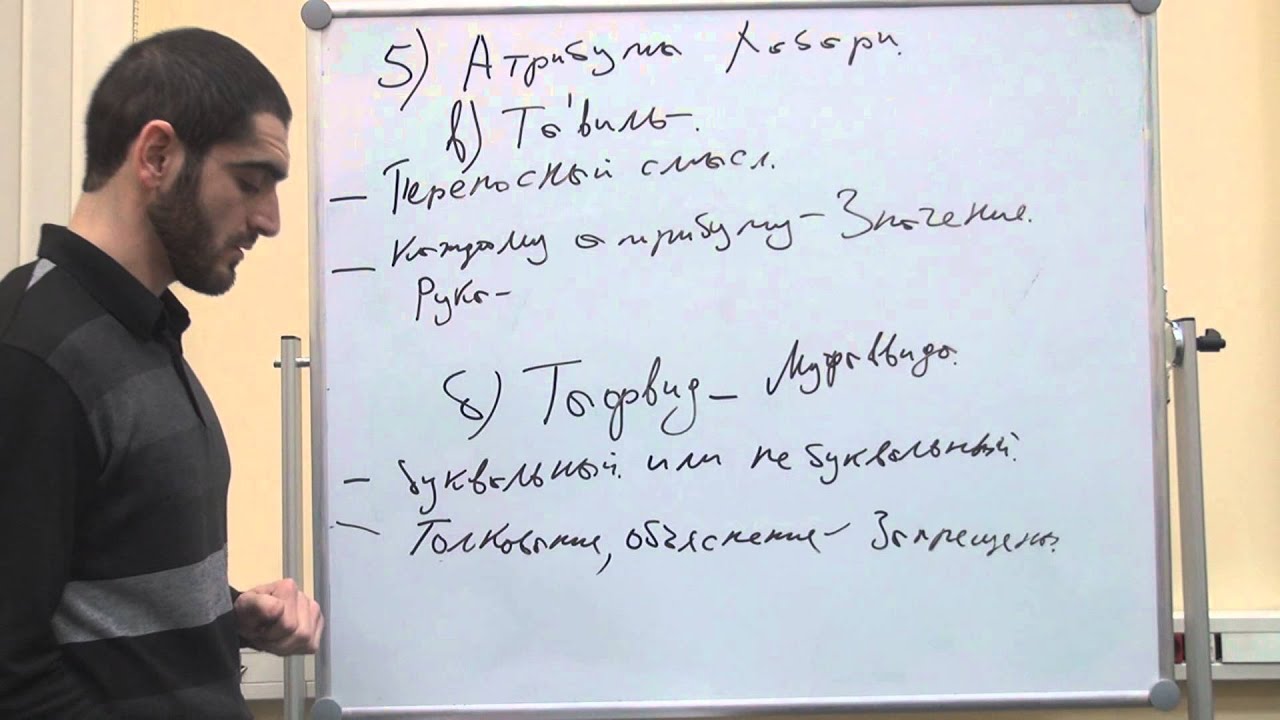 5) Атрибуты Хабари.
в) Та'виль.
— Переносный смысл.
— Каждому атрибуту — Значение.
Рука —
б) Тафвид — Муфаввида.
— Буквальный или не буквальный.
— Толкование, объяснение — Запрещены.